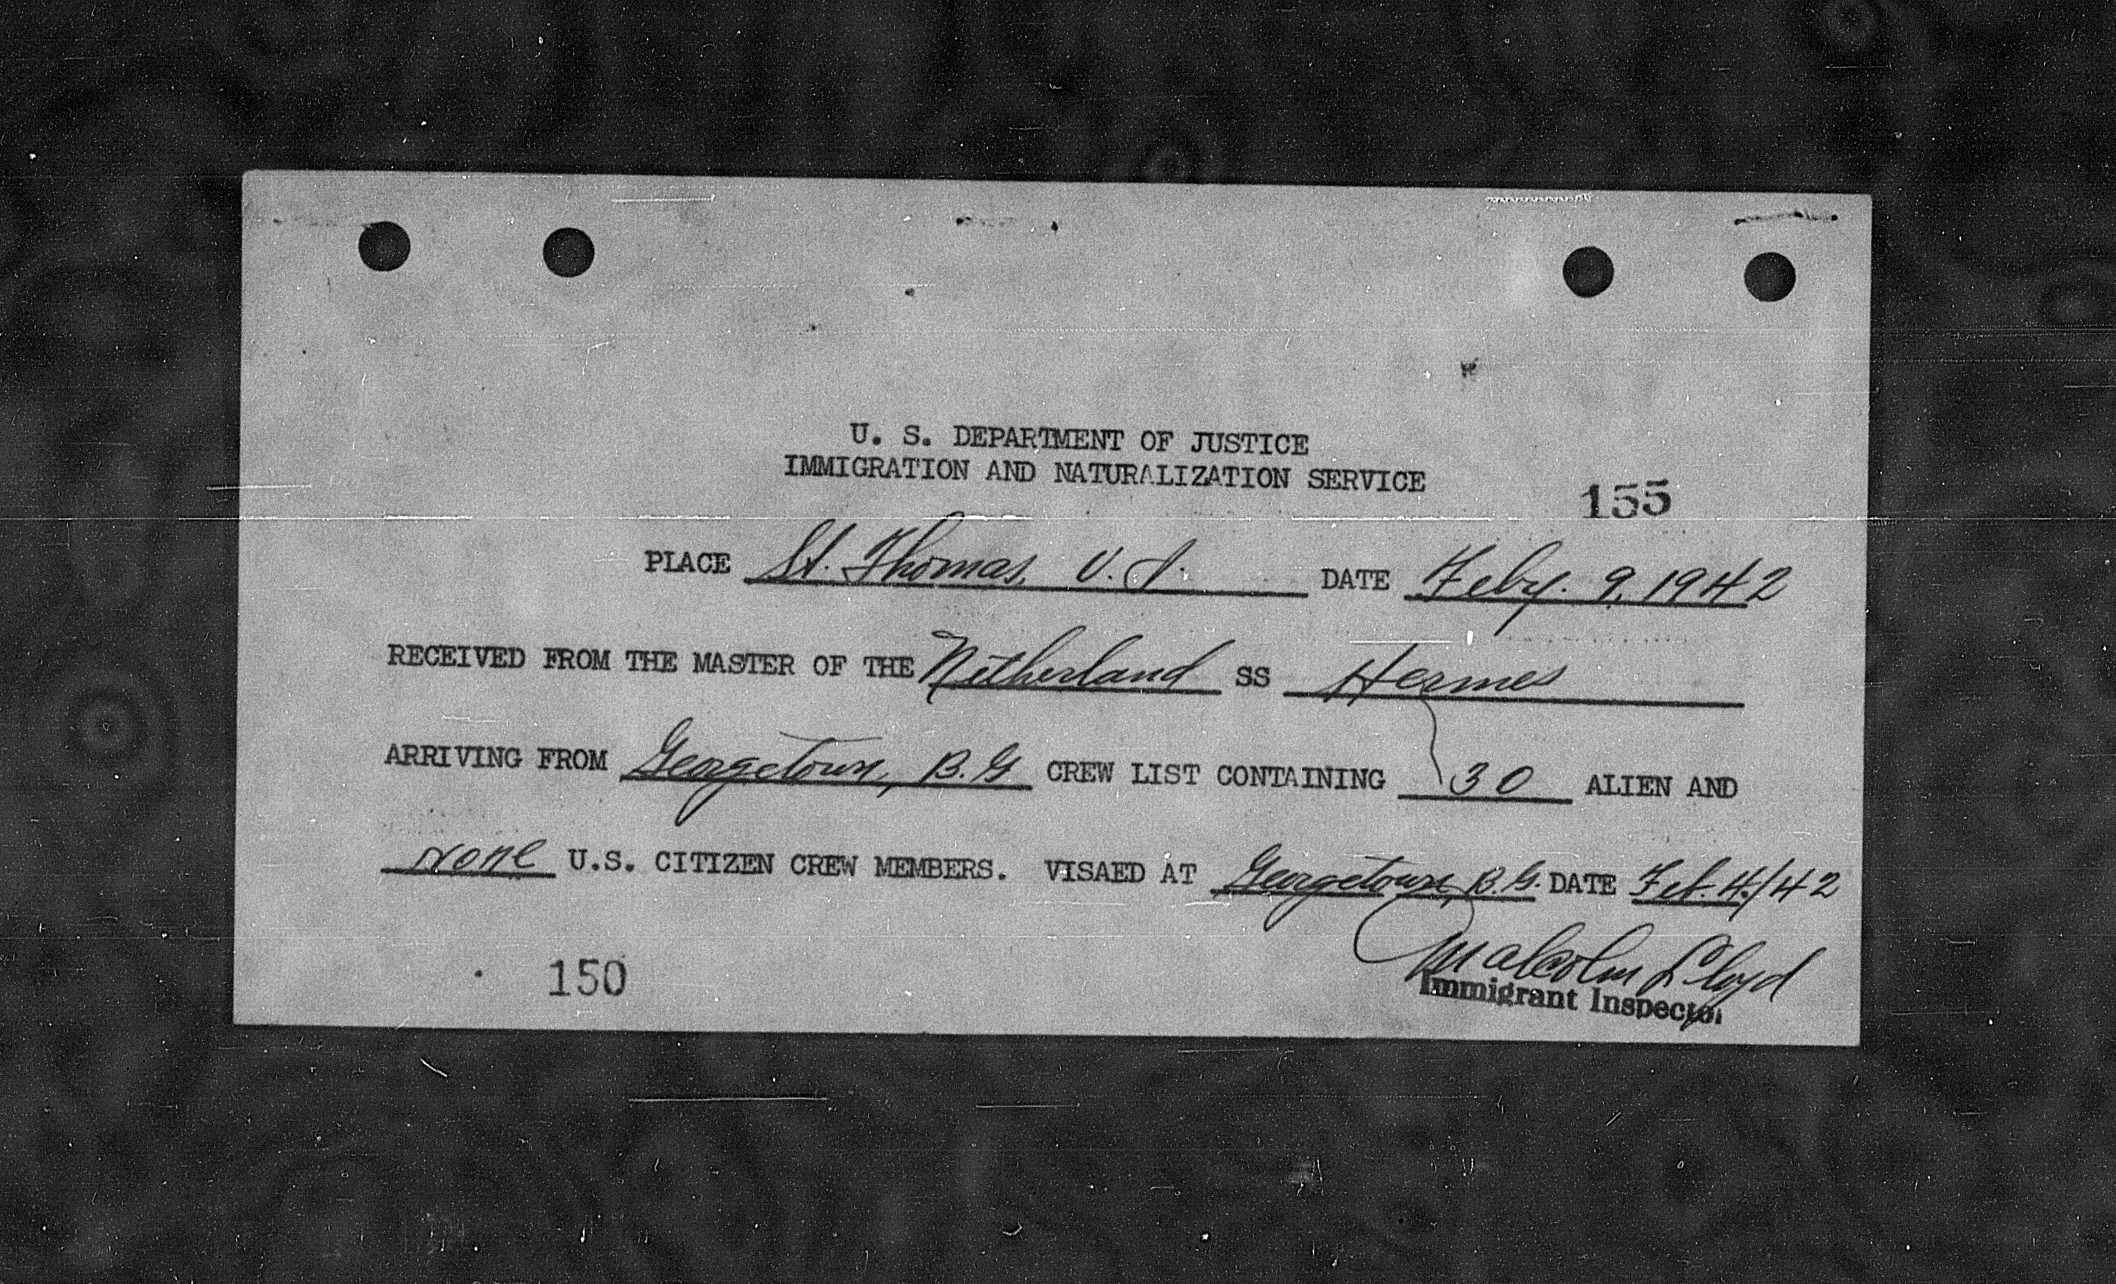 U. S. DEPARTMENT OF JUSTICE
IMMIGRATION AND NATURALIZATION SERVICE
155
PLACE St. Thomas, V. I. DATE Feby. 9, 1942
RECEIVED FROM THE MASTER OF THE Netherland SS Hermes
ARRIVING FROM Georgetown, B.G CREW LIST CONTAINING 30 ALIEN AND
None U.S. CITIZEN CREW MEMBERS. VISAED AT Georgetown, B.G. DATE Feb. 4/42
Malcolm Lloyd
Immigrant Inspector
150